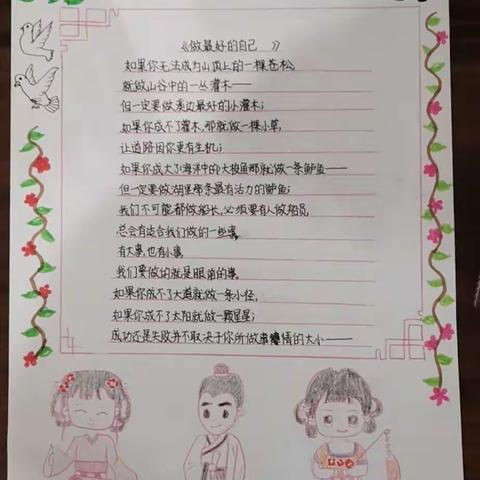 《做最好的自己 》
如果你无法成为山顶上的一棵苍松,
就做山谷中的一丛灌木——
但一定要做溪边最好的小灌木;
如果你成不了灌木,那就做一棵小草,
让道路因你更有生机;
如果你成大了海洋中的大梭鱼那就做一条鲈鱼——
但一定要做湖里那条最有活力的鲈鱼;
我们不可能都做船长,必须要有人做船员,
总会有适合我们做的一些事,
有大事,也有小事,
我们要做的就是眼前的事。
如果你成不了大道就做一条小径,
如果你成不了太阳就做一颗星星;
成功还是失败并不取决于你所做事情的大小——